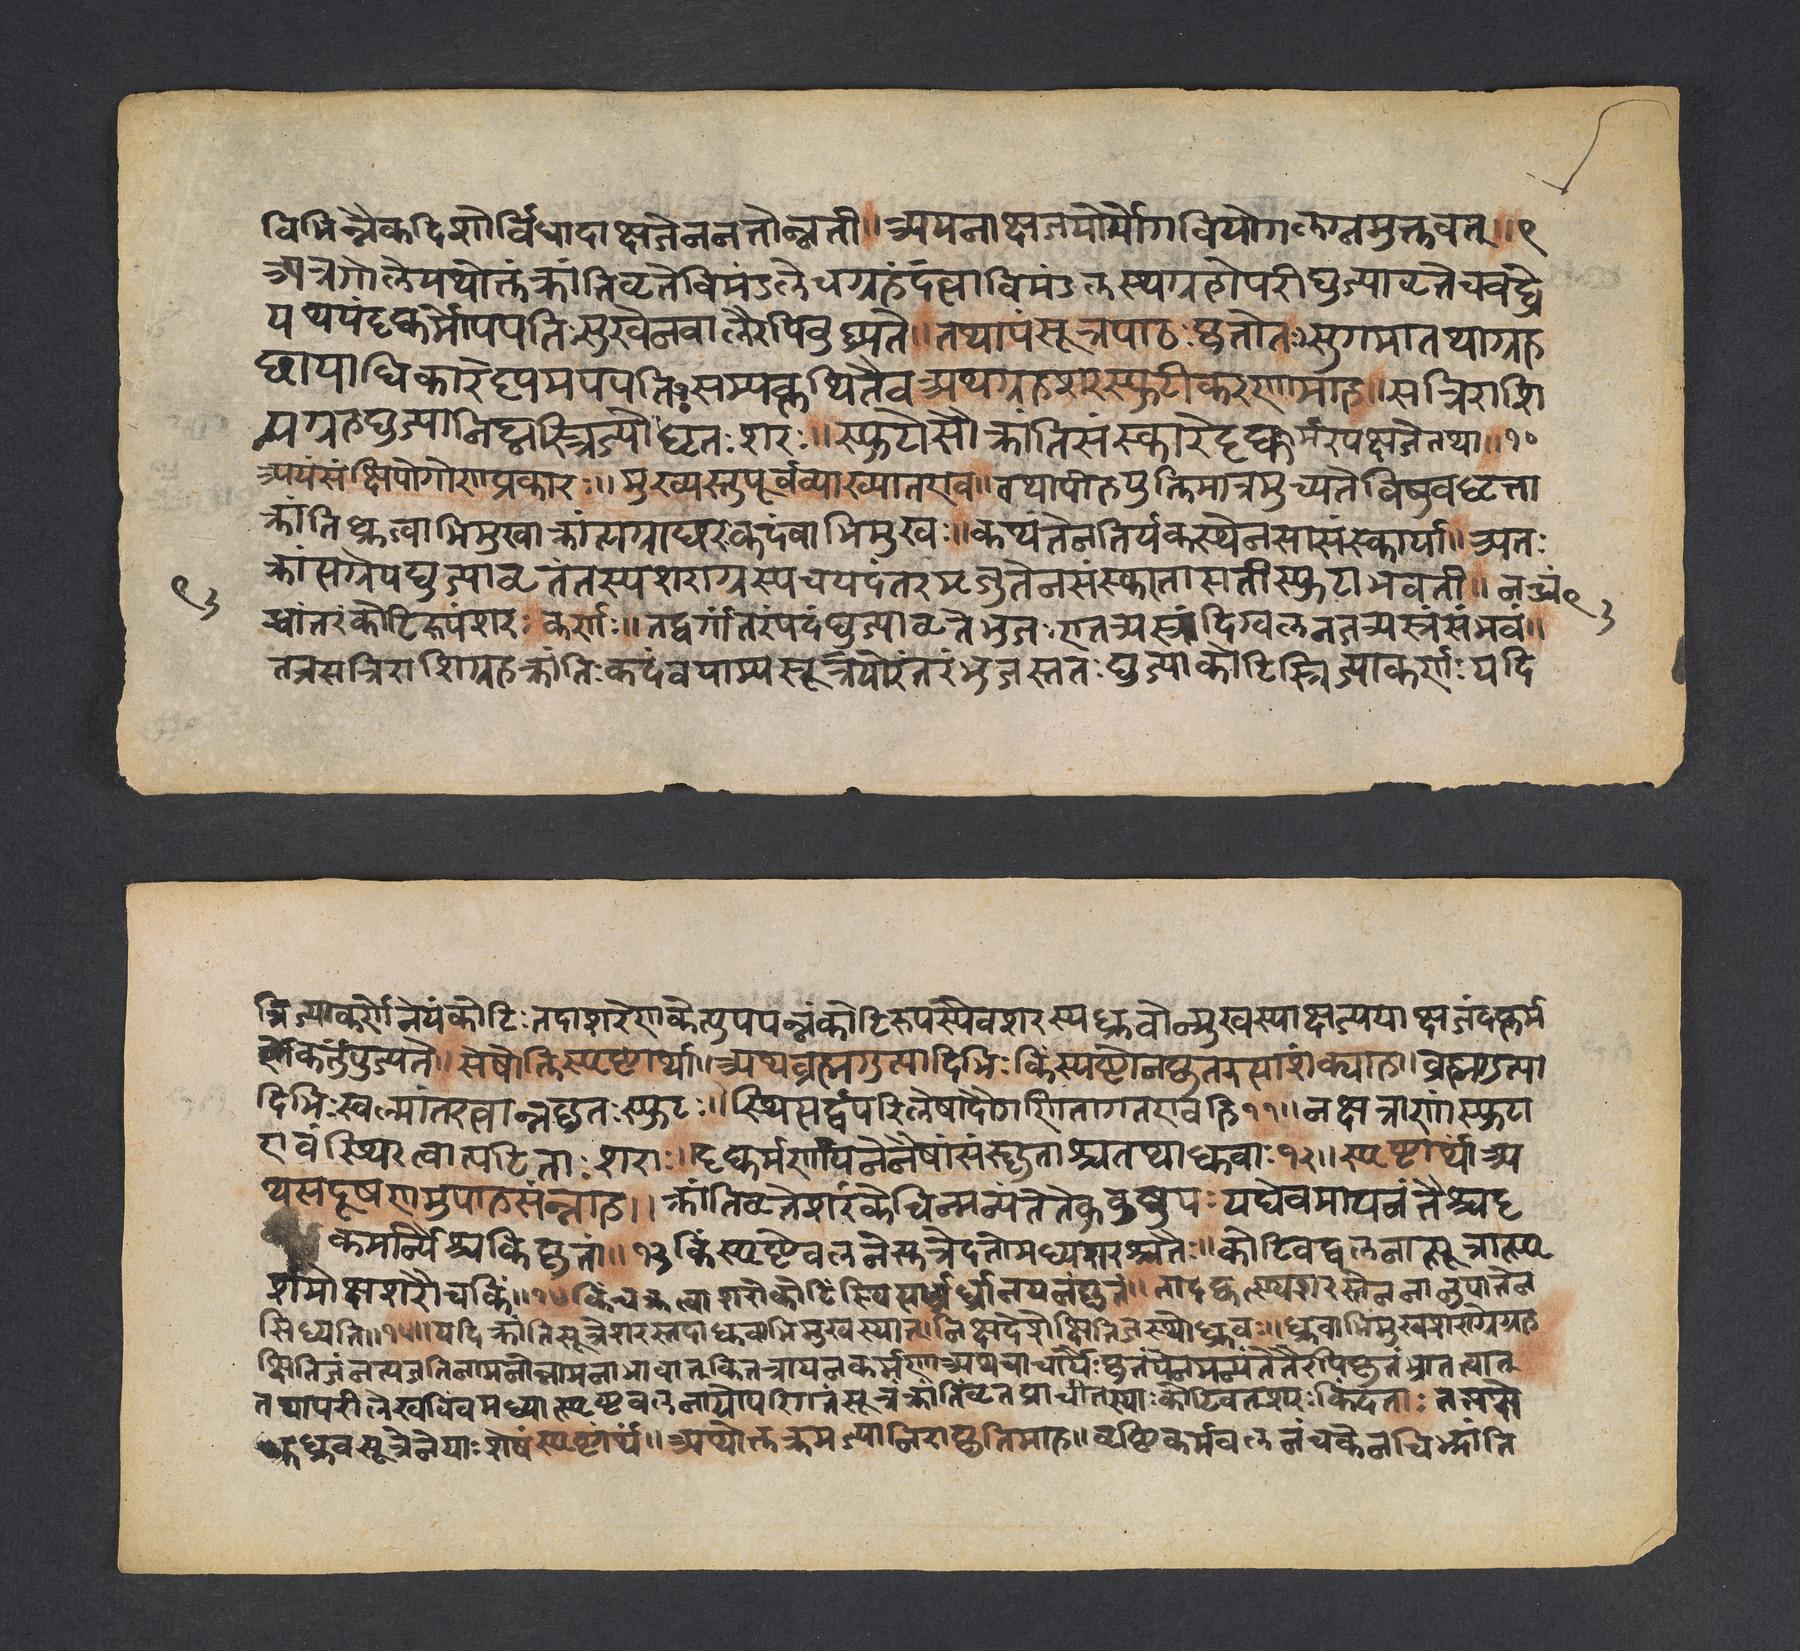 विभिन्नैकदिशोर्विधादाक्षजेननतोन्नती॥अयनाक्षजयोर्योगवियोगलग्नमुक्तवत्॥९
अत्रगोलेयथोक्तंक्रांतिवृत्तेविमंडलेचग्रहंदत्वाविमंडलस्थग्रहोपरीद्युज्यावृत्तेचबद्ध्वै
यथ्ययंदृक्कर्मोपपतिःसुखेनबालैरपिबुध्यते॥तथायंसूत्रपाठःकृतोतःसुगमातथाग्रह
छायाधिकारेदृप्यमपपतिःसम्यक्कथितैव अथग्रहशरस्फुटीकरणमाह॥सत्रिराशि
पग्रहद्युज्यानिघ्नस्त्रिज्योद्धृतःशरः॥स्फुटोसौक्रांतिसंस्कारेदृक्कर्मरपक्षजेतथा॥१०
अयंसंक्षिपोगौणप्रकारः॥मुख्यस्तुपूर्वव्याख्यातएव॥तथापीहयुक्तिमात्रमुच्यतेविषुवद्वृत्ता
क्रांतिध्रुवाभिमुखाक्रांत्यग्राच्छरकदंबाभिमुखः॥कथंतेनतिर्यकस्थेनसासंस्कार्या॥अतः
क्रांसग्रेयद्युज्यावृतंतस्यशराग्रस्यचयदंतरमृजुतेनसंस्कृतासतीस्फुटाभवती॥नत्रां
९३
ध्वांतरंकोटिरूपंशरःकर्णः॥तद्वर्गांतरंपदंद्युज्यावृतेभुजःएतत्र्यस्त्रंदिग्वलनजत्र्यस्त्रंसंभवं॥
९३
तत्रसत्रिराशिग्रहक्रांतिःकदंबयाम्यसूत्रयोरंतरंभुजस्ततःद्युज्याकोटिस्त्रिज्याकर्णःयदि
त्रिज्याकर्णेनेयंकोटिःतदाशरेणकेत्युपपन्नंकोटिरूपस्यैवशरस्यध्रुवोन्मुखस्याक्षज्ययाक्षजंदृक्कर्म
कर्तुंयुज्यते॥सेषोक्तिस्पष्टार्था॥अथब्रह्मगुप्तादिभिःकिंस्पष्टोनकृतइत्याशंक्याह॥ब्रह्मगुप्ता
दिभिःस्वल्पांतरत्वान्नकृतःस्फुटः॥स्थित्यर्द्धपरिलेषादौगणितागतएवहि११॥नक्षत्राणांस्फुटा
एवंस्थिरत्वात्पटिताःशराः॥दृक्कर्मणायनेनैषांसंस्कृताश्चतथाध्रुवाः१२॥स्पष्टार्थं॥अ
थसदूषणमुपाहसंन्नाह॥क्रांतिवृतेशरंकेचिन्मन्यंतेतेकुबुद्धयःयद्येवमायनंतैश्चदृ
कमन्यैश्चकिंकृतं॥१३किंस्पष्टेवलनेस्तत्रेदतोमध्यशरश्चतैः॥कोटिवद्वलनात्सूत्रात्स्पृ
र्शमोक्षशरौचकिं॥१४किंचकृत्वाशरोकोटिंस्थित्यर्धार्धानयनंकृतं॥तादृक्कस्थशरस्तेनानुपातेन
सिध्यति॥१५॥यदिक्रांतिसूत्रेशरस्तदाध्रुवाभिमुखस्यात्॥निक्षदेशेक्षितिजस्थोध्रुवः॥ध्रुवाभिमुखशराग्रेग्रह
क्षितिजंनत्यजतिनामनोन्नामनाभावात्कितत्रायनकर्मणाअथचाचार्यैःकृतंयेनमन्यंतेतैरपिकृतंभ्रातत्वात्
तथापरीलेखविंवमध्यात्स्पष्टवलनाग्रोपरिगतसूत्रंक्रांतिवृतप्राचीतस्याःकोटिवतशरःकिंदताः
ध्रुवसूत्रेनेयाःशेषंस्पष्टार्थं॥अथोक्तक्रमज्यानिराकृतिमाह॥दृष्टिकर्मवलनंचकेनचिक्रांति